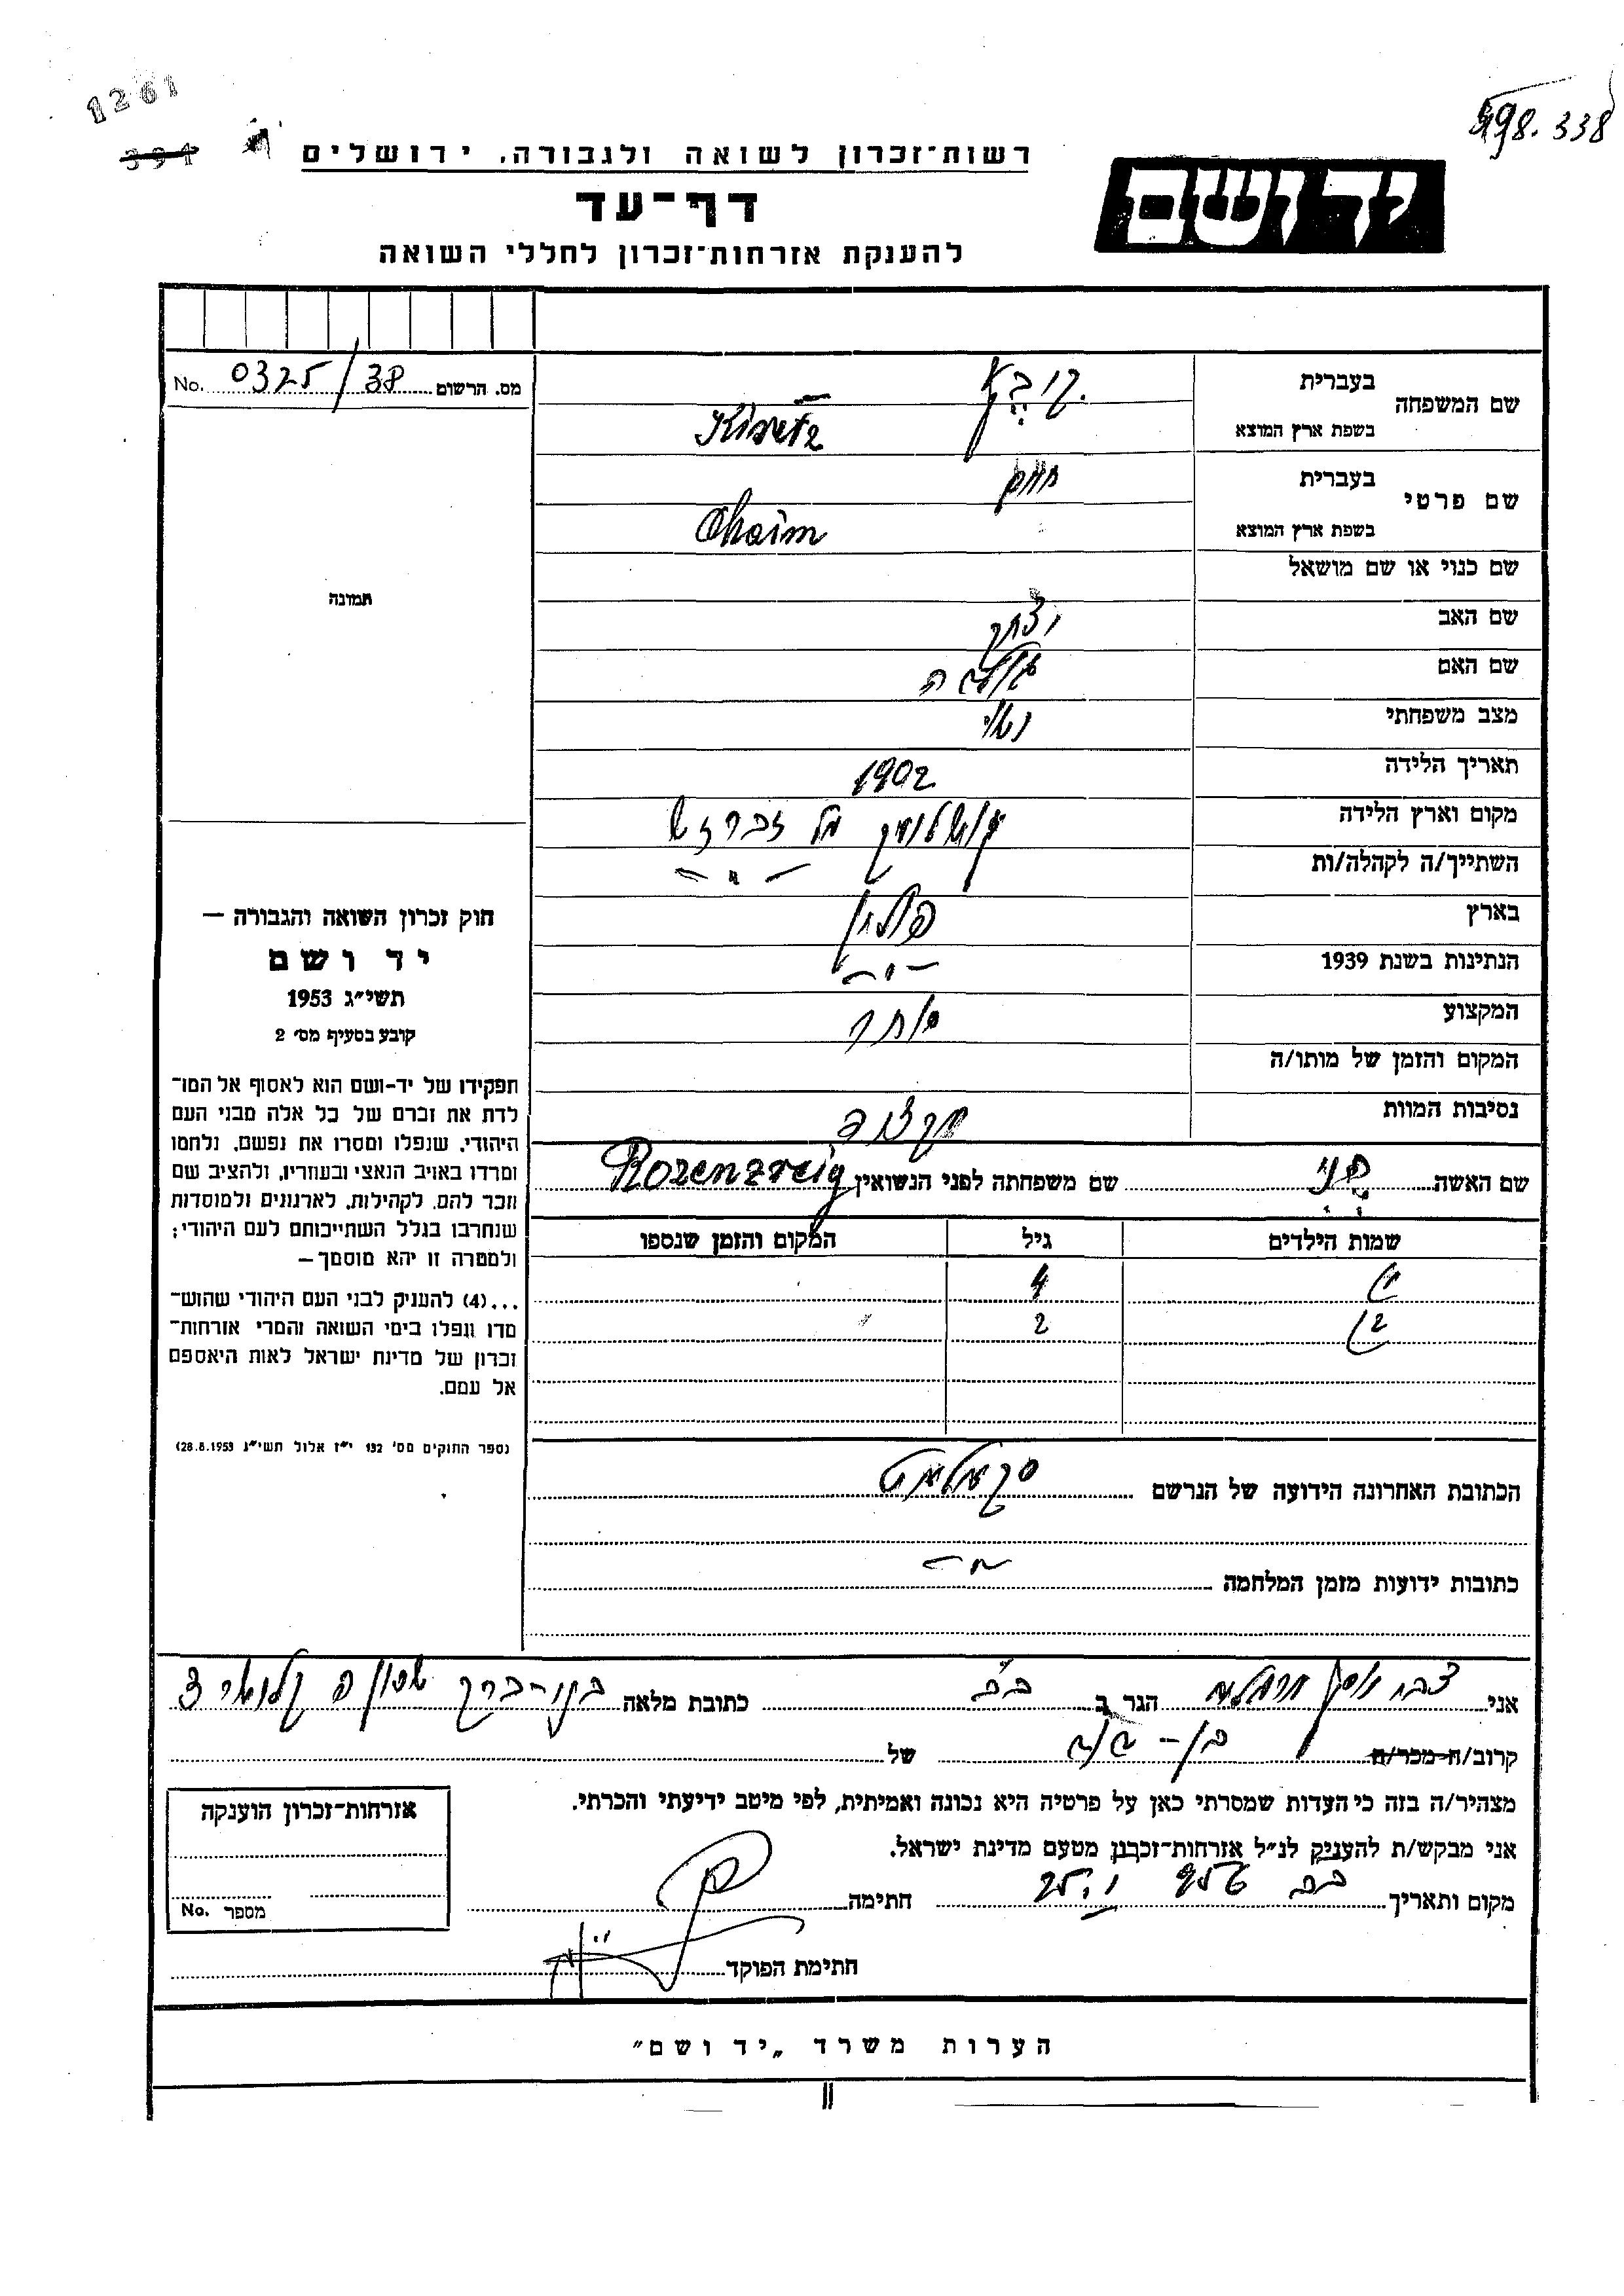 1261
398.338
334
רשות-זכרון לשואה ולגבורה. ירושלים
יד ושם
דף-עד
להענקת אזרחות-זכרון לחללי השואה
מס. הרשום 0325/38 No.
שם המשפחה
בעברית
בשפת ארץ המוצא
שם פרטי
בעברית חיים
בשפת ארץ המוצא Chaim
שם כנוי או שם מושאל
שם האב יצחק
שם האם
מצב משפחתי נשוי
תאריך הלידה 1902
מקום וארץ הלידה
השתייך/ה לקהלה/ות — " —
בארץ פולין
הנתינות בשנת 1939 — " —
המקצוע סוחר
המקום והזמן של מותו/ה
נסיבות המוות
שם האשה שם משפחתה לפני הנשואין Rozenzweig
שמות הילדים גיל המקום והזמן שנספו
4
2
הכתובת האחרונה הידועה של הנרשם
כתובות ידועות מזמן המלחמה
תמונה
חוק זכרון השואה והגבורה —
יד ושם
תשי"ג 1953
קובע בסעיף מס' 2
תפקידו של יד-ושם הוא לאסוף אל המו-
לדת את זכרם של כל אלה מבני העם
היהודי, שנפלו ומסרו את נפשם, נלחמו
ומרדו באויב הנאצי ובעוזריו, ולהציב שם
וזכר להם, לקהילות, לארגונים ולמוסדות
שנחרבו בגלל השתייכותם לעם היהודי;
ולמטרה זו יהא מוסמך —
...(4) להעניק לבני העם היהודי שהוש-
מדו ונפלו בימי השואה והמרי אזרחות-
זכרון של מדינת ישראל לאות היאספם
אל עמם.
(ספר החוקים מס' 132 י"ז אלול תשי"ג 28.8.1953)
אני הגר ב ב"ב כתובת מלאה בני-ברק
קרוב/ה מכר/ה בן-דוד של
מצהיר/ה בזה כי העדות שמסרתי כאן על פרטיה היא נכונה ואמיתית, לפי מיטב ידיעתי והכרתי.
אני מבקש/ת להעניק לנ"ל אזרחות-זכרון מטעם מדינת ישראל.
מקום ותאריך ב"ב חתימה
חתימת הפוקד
אזרחות-זכרון הוענקה
מספר No.
הערות משרד „יד ושם"